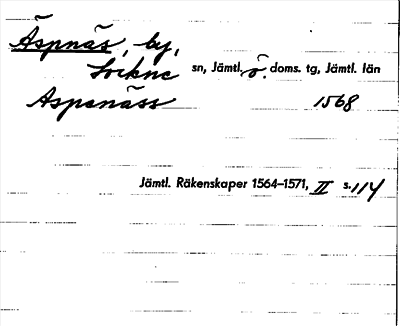 Äspnäs, by,
Lockne sn, Jämtl. ö. doms. tg, Jämtl. län
Aspanäss 1568
Jämtl. Räkenskaper 1564–1571, II s. 114